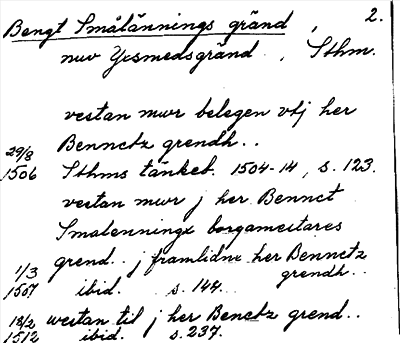 Bengt Smålännings gränd, 2.
nuv Yxsmedsgränd, Sthm.
vestan mwr belegen vtj her
29/8 Bennetz grendh..
1506 Sthms tänkeb. 1504-14, s. 123.
vestan mwr j her Bennet
Smalenningx borgamestares
1/3 grend.. j framlidne her Bennetz grendh..
1507 ibid. s. 144.
18/2 westan til j her Benetz grend..
1512 ibid. s. 237.